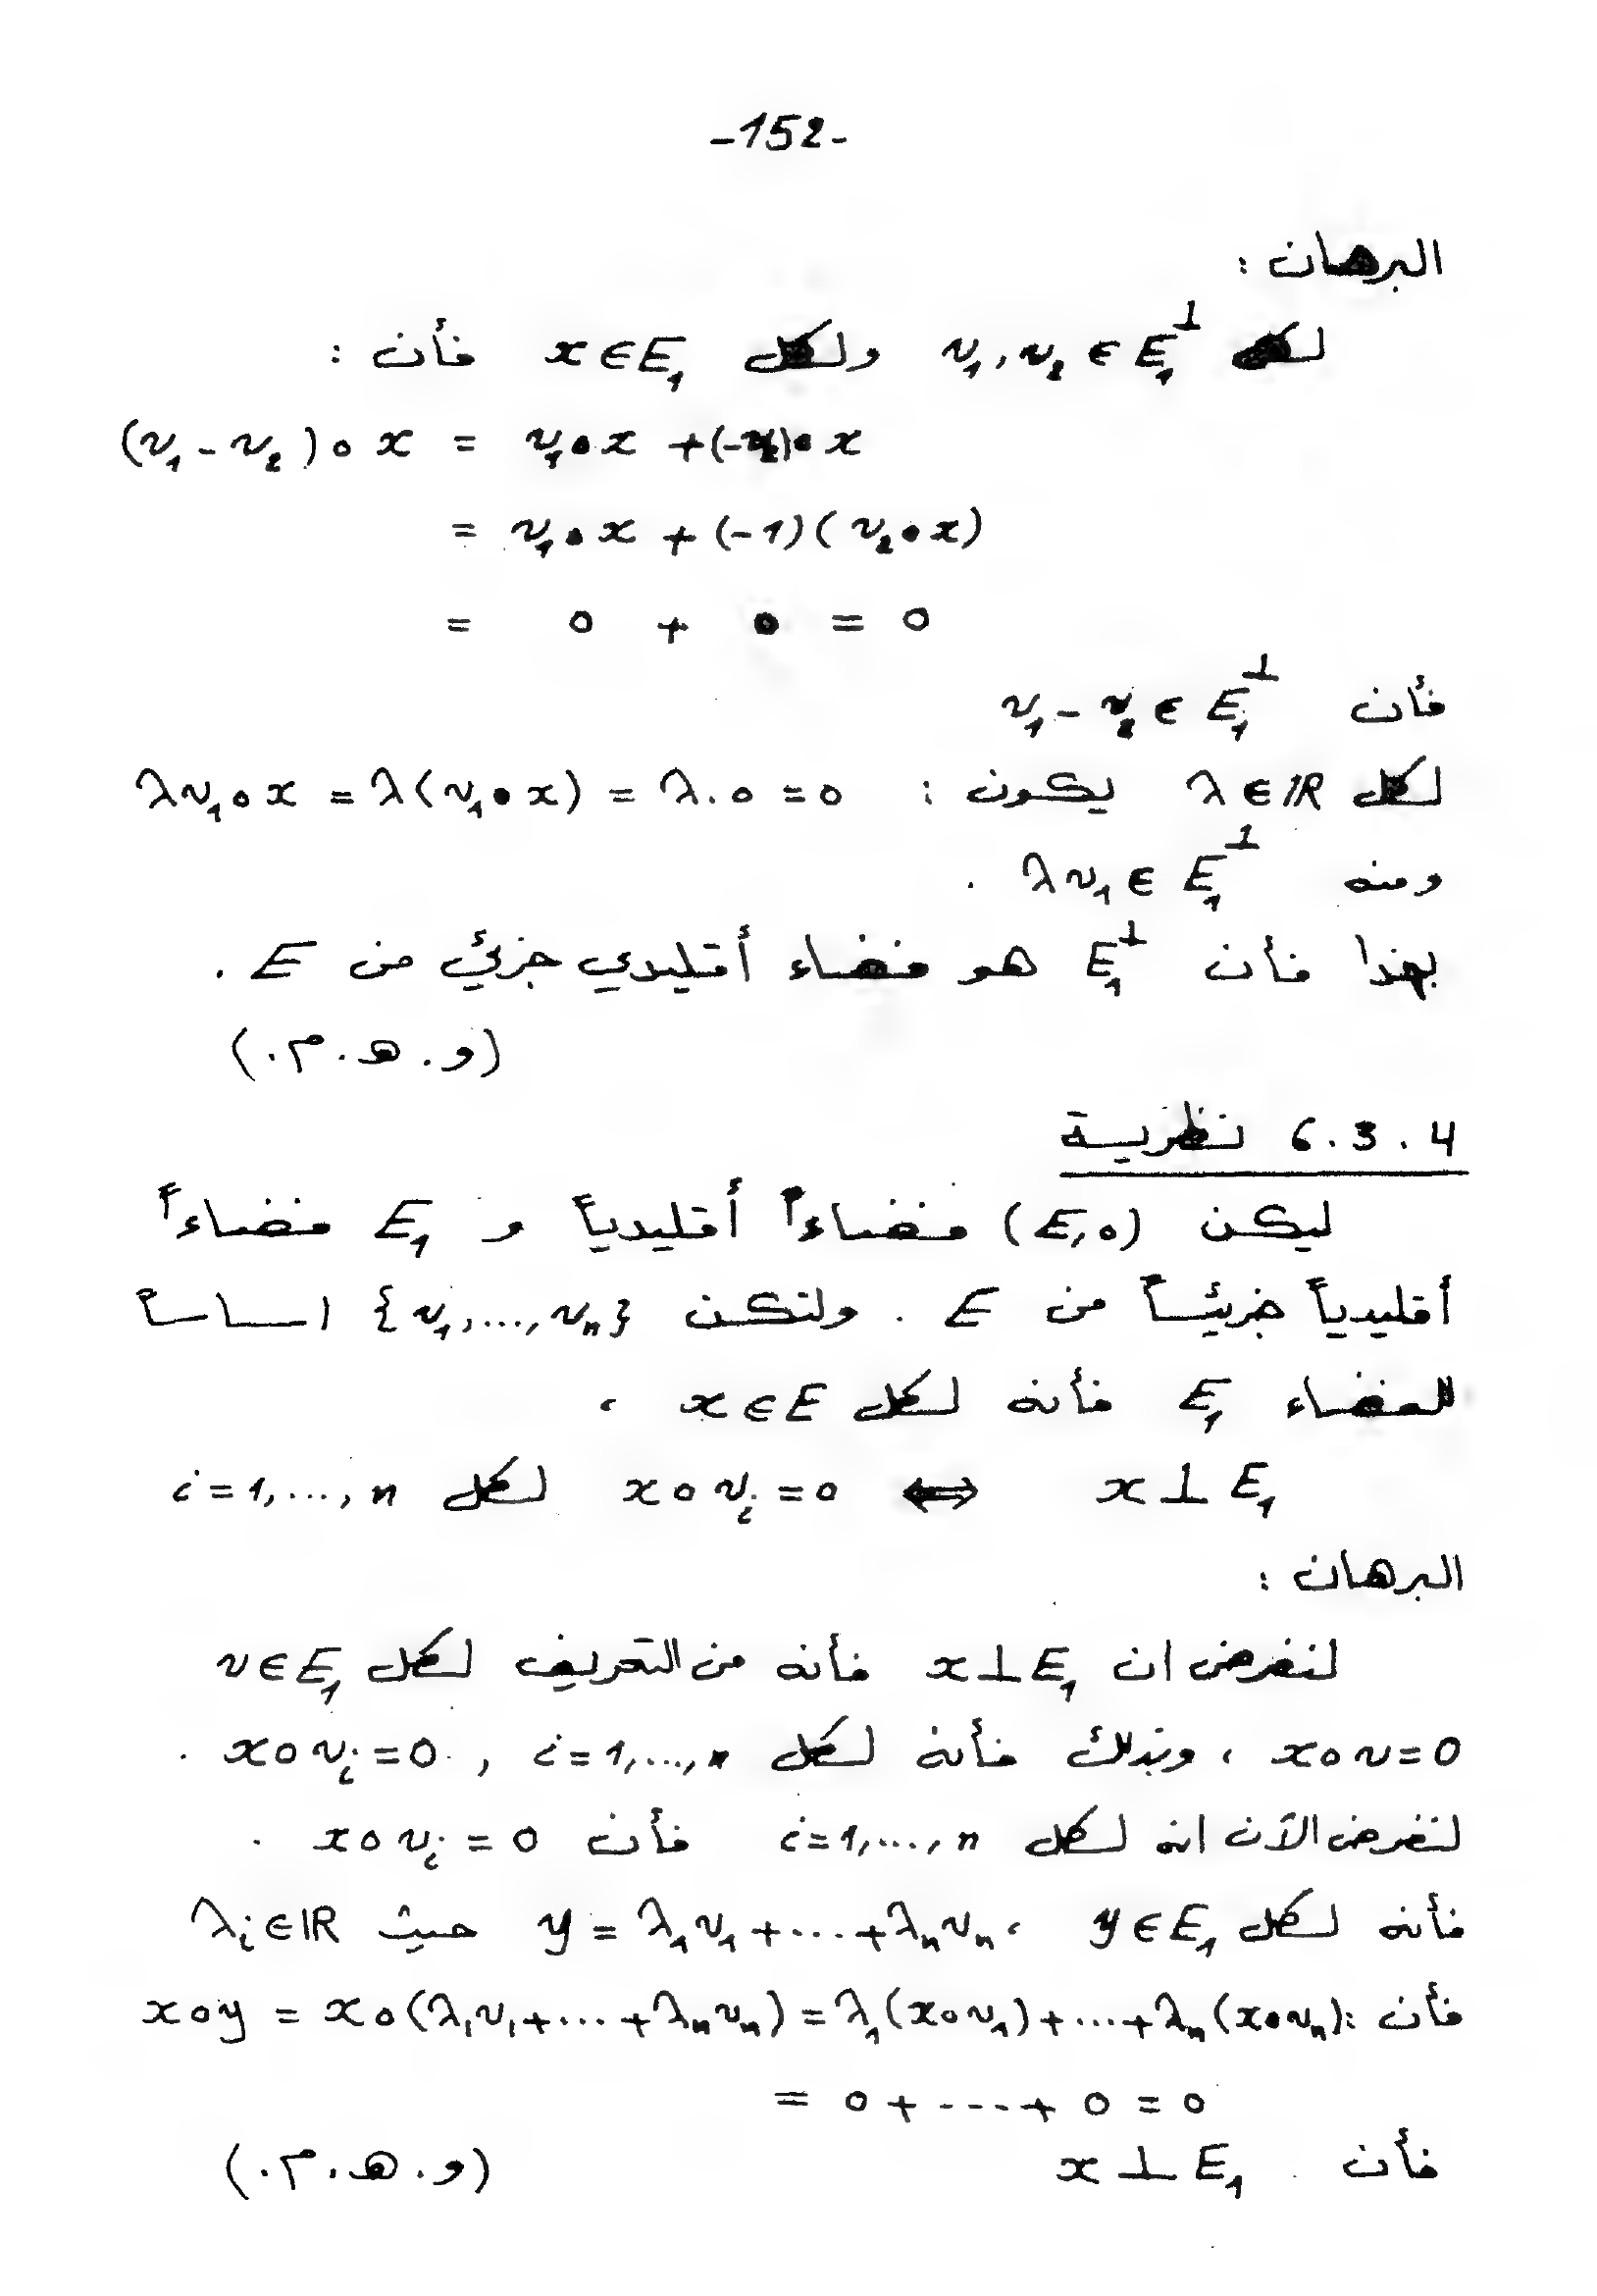 -152-
البرهان :
لكل v₁, v₂ ∈ E₁^⊥ ولكل x ∈ E₁ فأن :
(v₁ - v₂) ∘ x = v₁ ∘ x + (-v₂) ∘ x
= v₁ ∘ x + (-1)(v₂ ∘ x)
= 0 + 0 = 0
فأن v₁ - v₂ ∈ E₁^⊥
لكل λ ∈ ℝ يكون : λv₁ ∘ x = λ(v₁ ∘ x) = λ.0 = 0
ومنه λv₁ ∈ E₁^⊥ .
بهذا فأن E₁^⊥ هو فضاء أقليدي جزئي من E .
(و . هـ . م .)
6.3.4 نظرية
ليكن (E,∘) فضاءاً أقليدياً و E₁ فضاءاً
أقليدياً جزئياً من E . ولتكن {v₁,...,vₙ} اساساً
للفضاء E₁ فأنه لكل x ∈ E ،
x ⊥ E₁ ⟺ x ∘ vᵢ = 0 لكل i = 1,...,n
البرهان :
لنفرض ان x ⊥ E₁ فأنه من التعريف لكل v ∈ E₁
x ∘ v = 0 ، وبذلك فأنه لكل i = 1,...,n , x ∘ vᵢ = 0 .
لنفرض الآن انه لكل i = 1,...,n فأن x ∘ vᵢ = 0 .
فأنه لكل y ∈ E₁ ، y = λ₁v₁ + ... + λₙvₙ حيث λᵢ ∈ ℝ
فأن : x ∘ y = x ∘ (λ₁v₁ + ... + λₙvₙ) = λ₁(x ∘ v₁) + ... + λₙ(x ∘ vₙ)
= 0 + ---- + 0 = 0
فأن x ⊥ E₁ (و . هـ . م .)